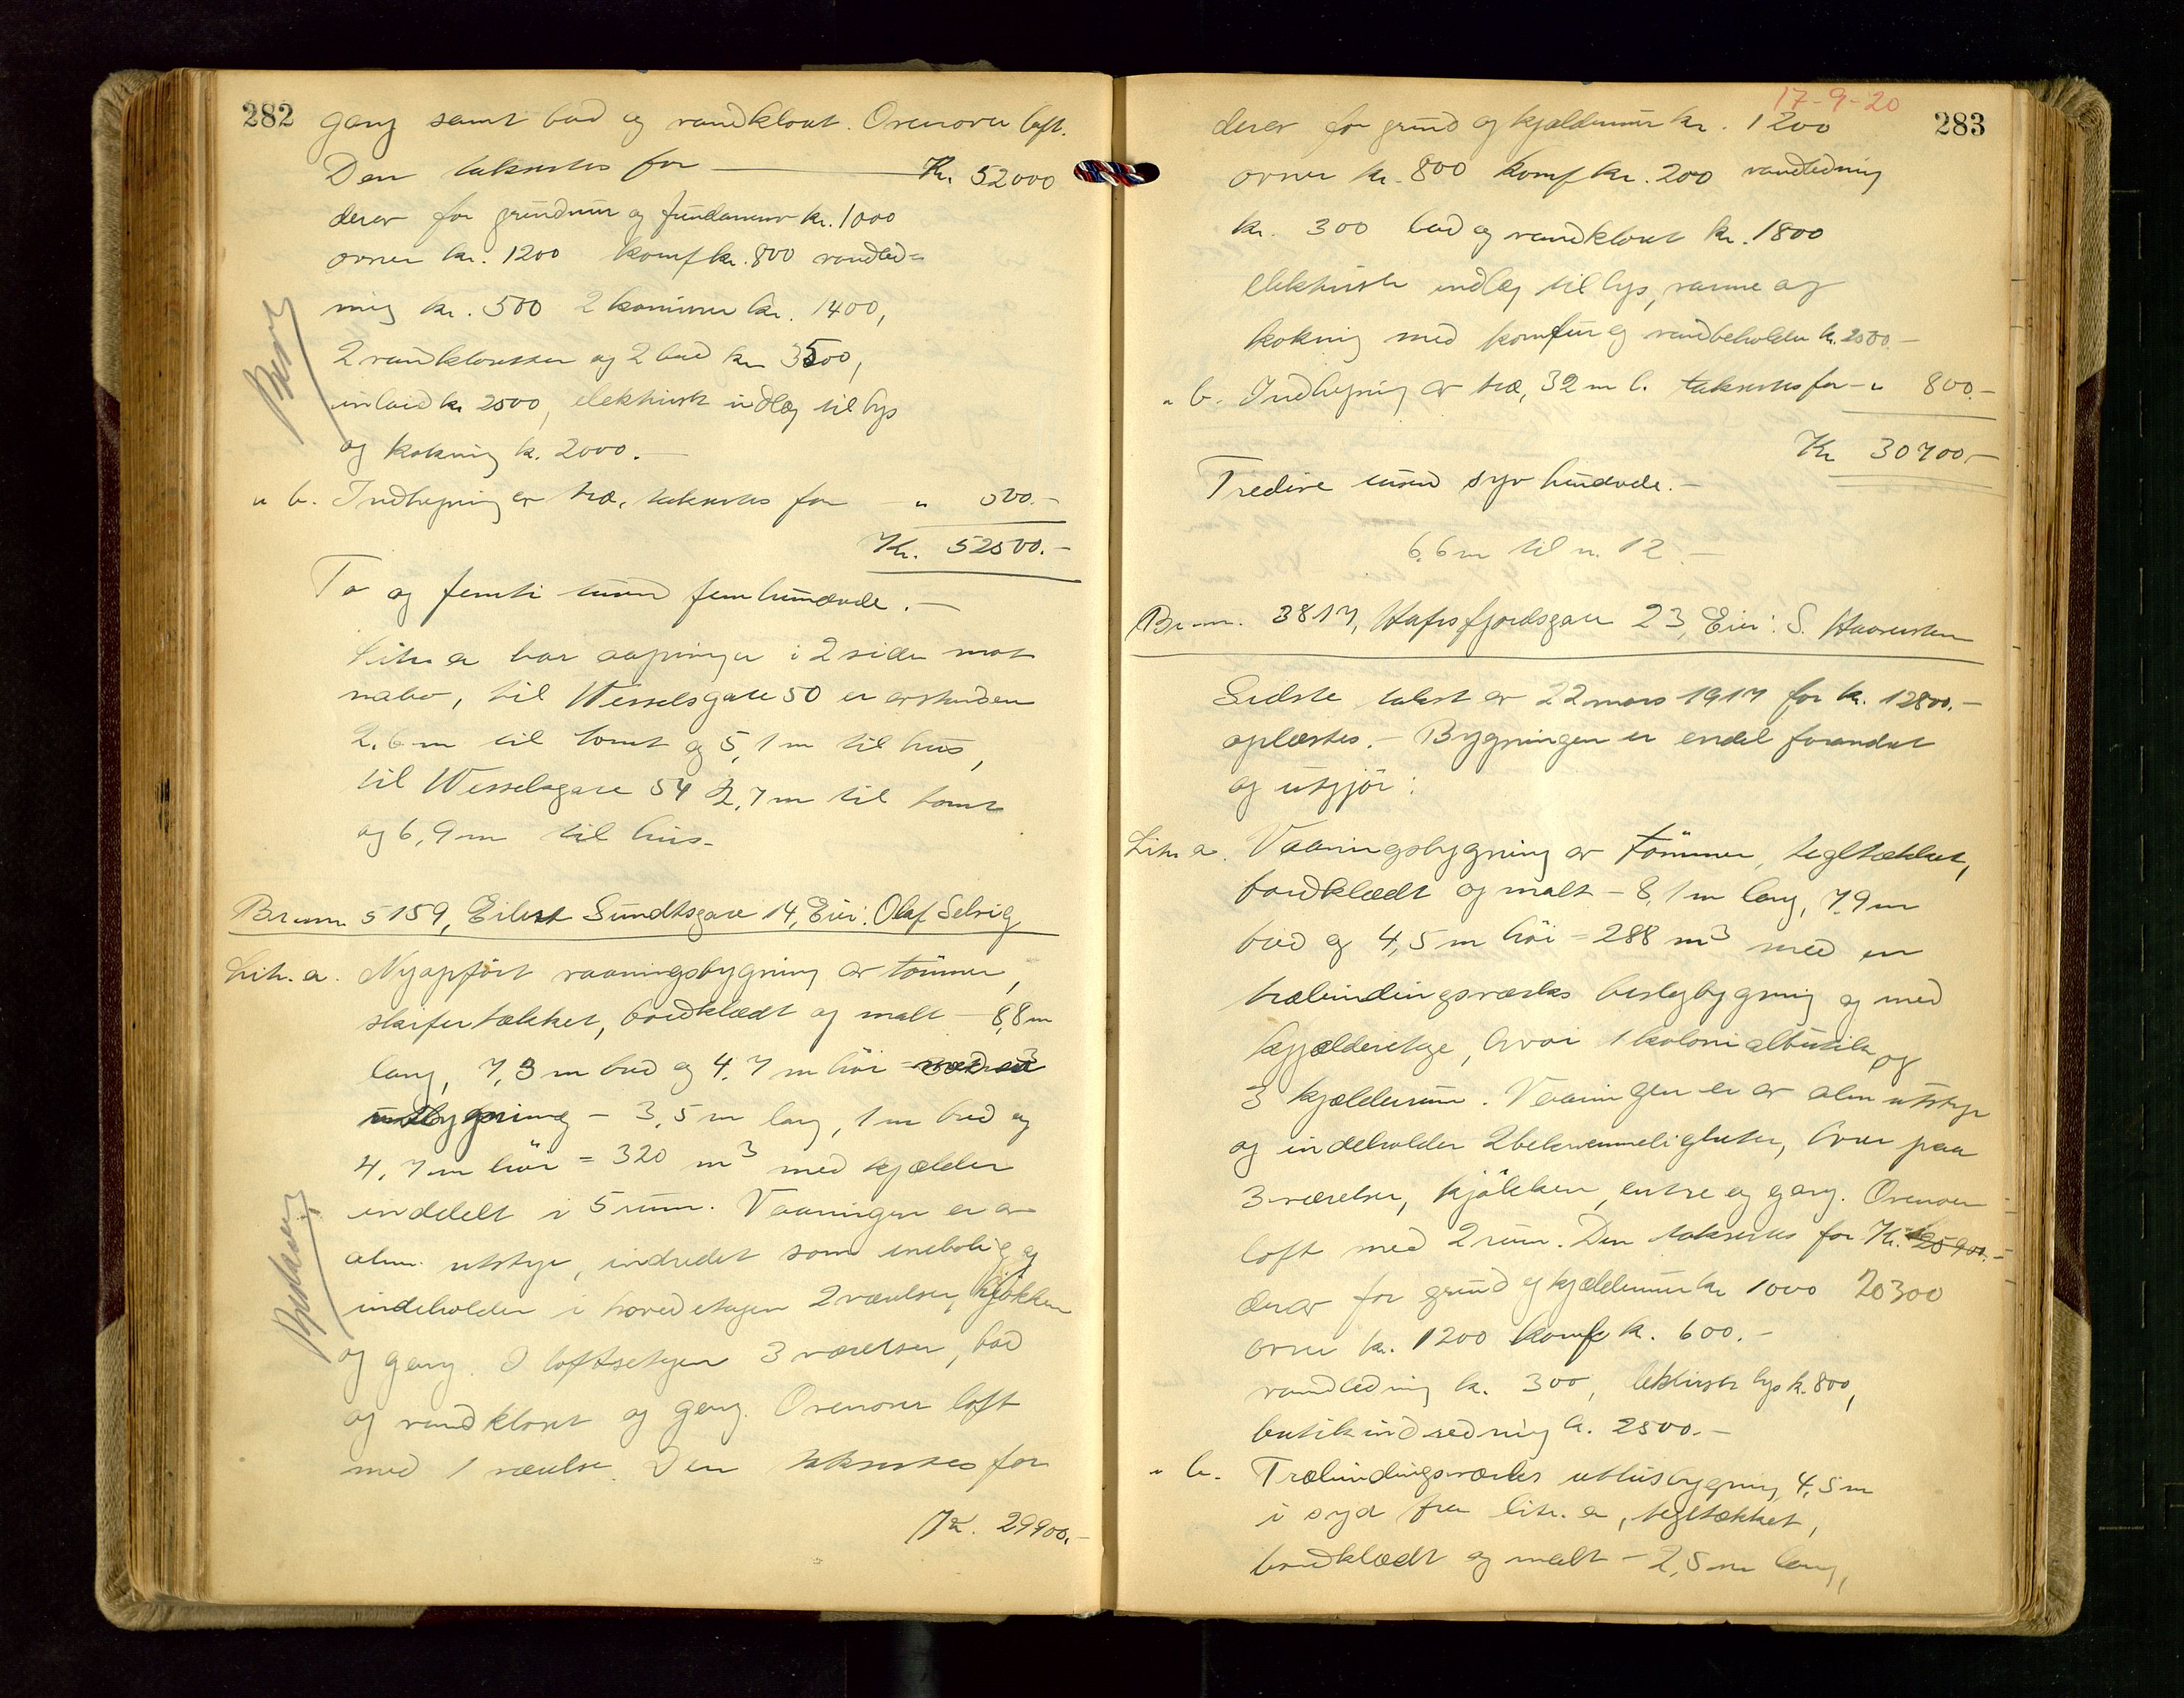 282
gang samt bad og vandkloset. Ovenover loft.
Den takseres for — Kr. 52000
derav for grundmur og fundament kr. 1000
ovner kr. 1200 komf kr. 800 vandled-
ning kr. 500 2 kaminer kr. 1400,
2 vandklosetter og 2 bad kr 3500,
inlaid kr 2500, elektrisk indlæg til lys
og kokning kr. 2000.-
" b. Indhegning av træ, takseres for " 500.-
Kr. 52500.-
To og femti tusen femhundrede.-
Litr. a har aapninger i 2 sider mot
nabo, til Wesselsgate 50 er avstanden
2,6 m til tomt og 5,1 m til hus,
til Wesselsgate 54 2,7 m til tomt
og 6,9 m til hus.
Br.nr. 5159, Eilert Sundtsgate 14, Eier: Olaf Selvig
Litr. a. Nyopført vaaningsbygning av tømmer,
skifertækket, bordklædt og malt - 8,8 m
lang, 7,3 m bred og 4,7 m høi
utbygning - 3,5 m lang, 1 m bred og
4,7 m høi = 320 m3 med kjælder
inddelt i 5 rum. Vaaningen er av
alm. utstyr, indredet som enebolig og
indeholder i hovedetagen 2 værelser, kjøkken
og gang. I loftsetagen 3 værelser, bad
og vandkloset og gang. Ovenover loft
med 1 værelse. Den takseres for
Kr. 29900.-
17-9-20
283
derav for grund og kjældermur kr. 1200
ovner kr. 800 komf kr. 200 vandledning
kr. 300 bad og vandkloset kr. 1800
elektrisk indlæg til lys, varme og
kokning med komfur og vandbeholder kr. 2500.-
" b. Indhegning av træ, 32 m l. takseres for - " 800.-
Kr 30700.-
Tredive tusen syv hundrede.-
6,6 m til n. 12.-
Br.nr. 3817, Hafrsfjordsgate 23, Eier: S.
Sidste takst av 22 mars 1917 for kr. 12800.-
oplæstes.- Bygningen er endel forandret
og utgjør:
Litr. a. Vaaningsbygning av tømmer, tegltækket,
bordklædt og malt - 8,1 m lang, 7,9 m
bred og 4,5 m høi = 288 m3 med en
træbindingsværks bislagbygning og med
kjælderetage, hvor 1 kolonialbutik og
3 kjælderrum. Vaaningen er av alm utstyr
og indeholder 2 bekvemmeligheter, hver paa
3 værelser, kjøkken, entre og gang. Ovenover
loft med 2 rum. Den takseres for Kr. 25900.-
derav for grund og kjældermur kr 1000 20300
ovner kr. 1200 komf kr. 600.-
vandledning kr. 300, elektrisk lys kr. 800,
butikindredning kr. 2500.-
" b. Træbindingsværks uthusbygning 4,5 m
i syd fra litr. a, tegltækket,
bordklædt og malt - 2,5 m lang,